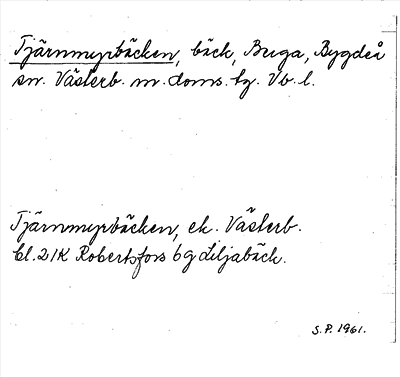 Tjärnmyrbäcken, bäck, Bruga, Bygdeå
sn. Västerb. m. doms. tg. Vb. l.
Tjärnmyrbäcken, ek. Västerb.
bl. 21K Robertsfors 6g Liljabäck.
S.P. 1961.